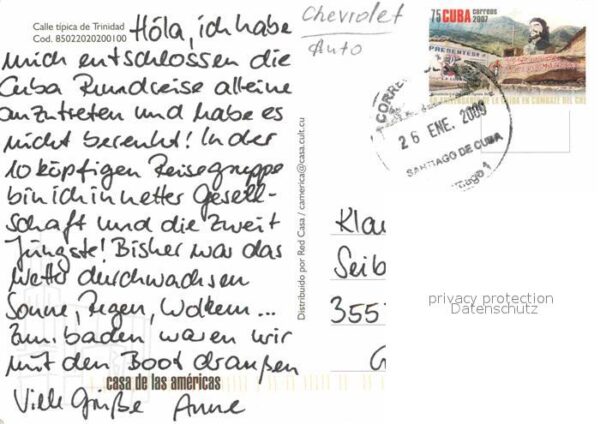 Calle típica de Trinidad
Cod. 85022020200100
Hóla, ich habe
mich entschlossen die
Cuba Rundreise alleine
anzutreten und habe es
nicht bereuht! In der
10 köpfigen Reisegruppe
bin ich in netter Gesell-
schaft und die zweit
Jüngste! Bisher war das
Wetter durchwachsen
Sonne, Regen, Wolken...
Zum baden waren wir
mit den Boot draußen
casa de las américas
Viele Grüße Anne
Distribuido por Red Casa / camerica@casa.cult.cu
Chevrolet
Auto
75 CUBA correos
2007
CORREO
26 ENE. 2009
SANTIAGO DE CUBA
Klau
Seib
355
G
privacy protection
Datenschutz